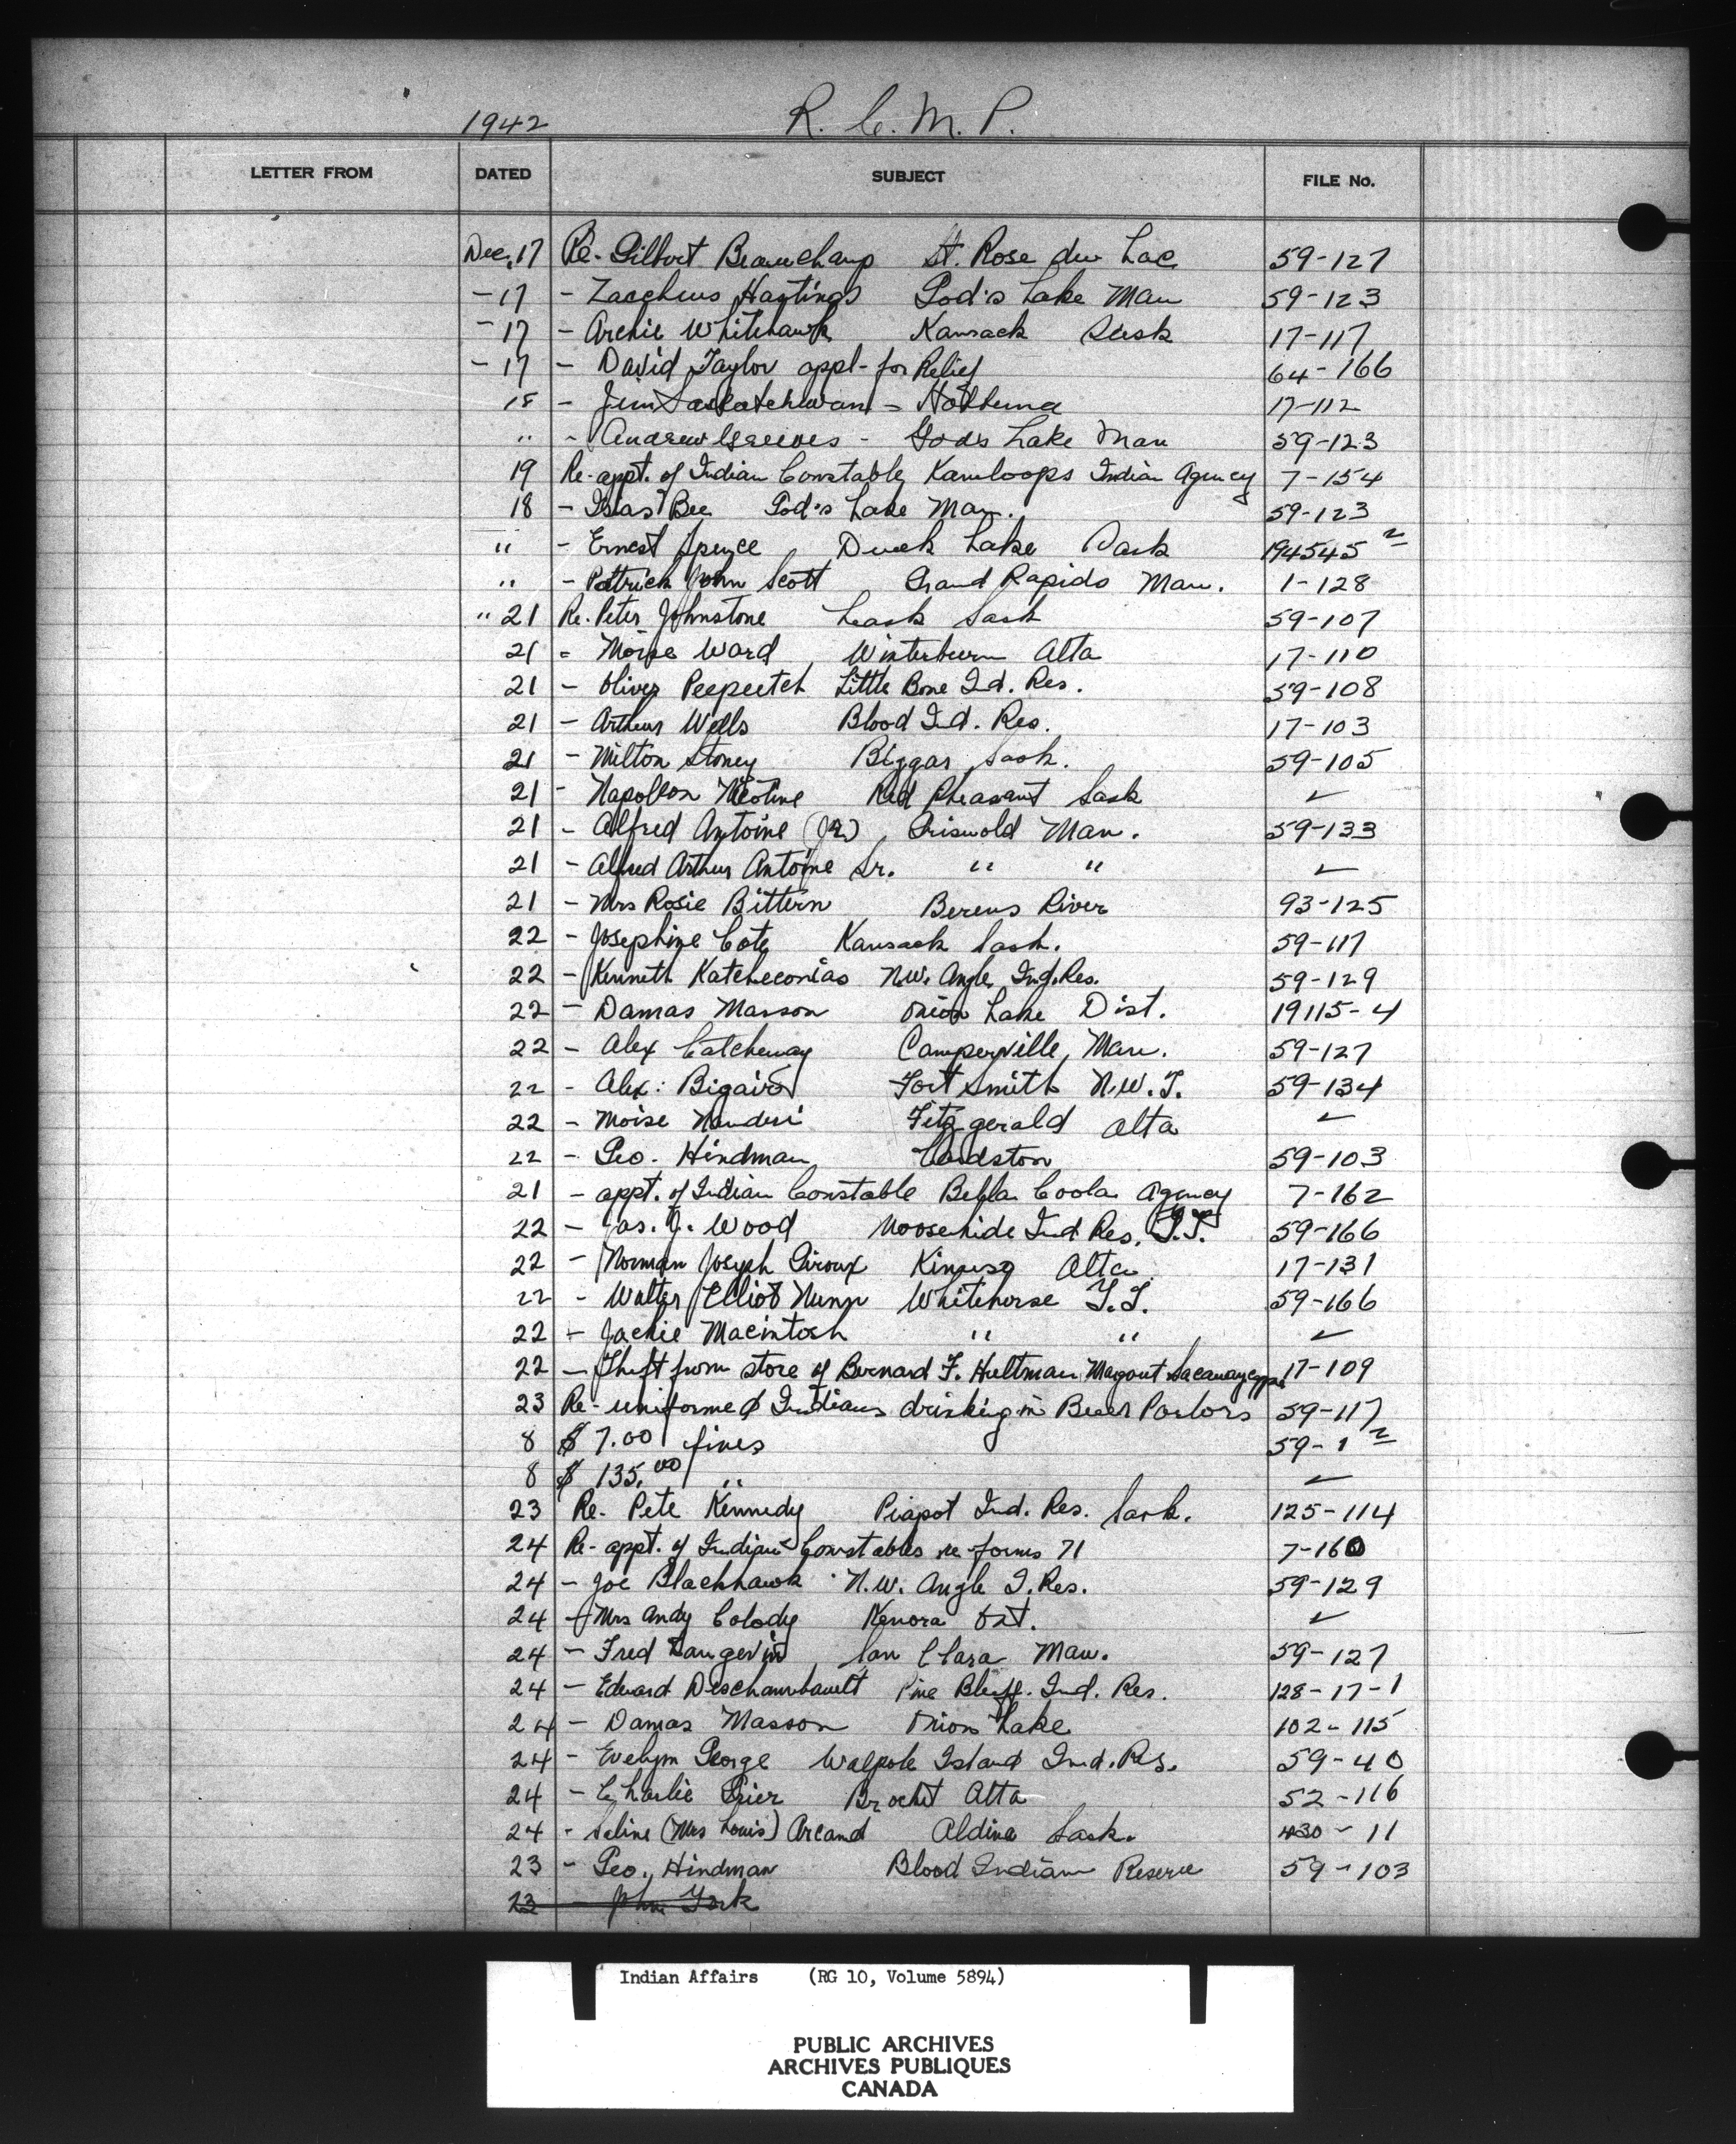 1942 R. C. M. P.
LETTER FROM DATED SUBJECT FILE No.
Dec. 17 Re - Gilbert Beauchamp St. Rose du Lac 59-127
- 17 - Zaccheus Hastings God's Lake Man 59-123
- 17 - Archie Whitehawk Kamsack Sask 17-117
- 17 - David Taylor appl - for Relief 64-166
18 - Jim Saskatchewan - Hobbema 17-112
" - Andrew Grieves - Gods Lake Man 59-123
19 Re - appt. of Indian Constable Kamloops Indian Agency 7-154
18 - Isias Bee God's Lake Man. 59-123
" - Ernest Spence Duck Lake Sask 194545 2
" - Patrick John Scott Grand Rapids Man. 1-128
" 21 Re. Peter Johnstone Leask Sask 59-107
21 - Moise Ward Winterburn Alta 17-110
21 - Oliver Peepeetch Little Bone Ind. Res. 59-108
21 - Arthur Wells Blood Ind. Res. 17-103
21 - Milton Stoney Biggar Sask. 59-105
21 - Napoleon Nicotine Red Pheasant Sask ✓
21 - Alfred Antoine (Jr.) Griswold Man. 59-133
21 - Alfred Arthur Antoine Sr. " " ✓
21 - Mrs Rosie Bittern Berens River 93-125
22 - Josephine Cote Kamsack Sask. 59-117
22 - Kenneth Katcheconias N.W. Angle Ind. Res. 59-129
22 - Damas Masson Onion Lake Dist. 19115-4
22 - Alex Catcheway Camperville, Man. 59-127
22 - Alex: Fort Smith N.W.T. 59-134
22 - Moise Fitzgerald Alta ✓
22 - Geo. Hindman Cardston 59-103
21 - appt. of Indian Constable Bella Coola Agency 7-162
22 - Jas. J. Wood Moosehide Ind Res. Y.T. 59-166
22 - Norman Joseph Giroux Kinuso Alta 17-131
22 - Walter Elliot Nunn Whitehorse Y.T. 59-166
22 - Jackie Macintosh " " ✓
22 - Theft from store of Bernard F. Hultman 17-109
23 Re - uniformed Indians drinking in Beer Parlors 59-117
8 $ 7.00 fines 59-1 2
8 $ 135.00 " ✓
23 Re. Pete Kennedy Piapot Ind. Res. Sask. 125-114
24 Re - appt. of Indian Constables re forms 71 7-160
24 - Joe Blackhawk N.W. Angle I. Res. 59-129
24 - Mrs Andy Colody Kenora Ont. ✓
24 - Fred Langevin San Clara Man. 59-127
24 - Edward Deschambault Pine Bluff. Ind. Res. 128-17-1
24 - Damas Masson Onion Lake 102-115
24 - Evelyn George Walpole Island Ind. Res. 59-40
24 - Charlie Grier Brocket Alta 52-116
24 - Seline (Mrs Louis) Arcand Aldina Sask. 430-11
23 - Geo. Hindman Blood Indian Reserve 59-103
23 - John York
Indian Affairs (RG 10, Volume 5894)
PUBLIC ARCHIVES
ARCHIVES PUBLIQUES
CANADA